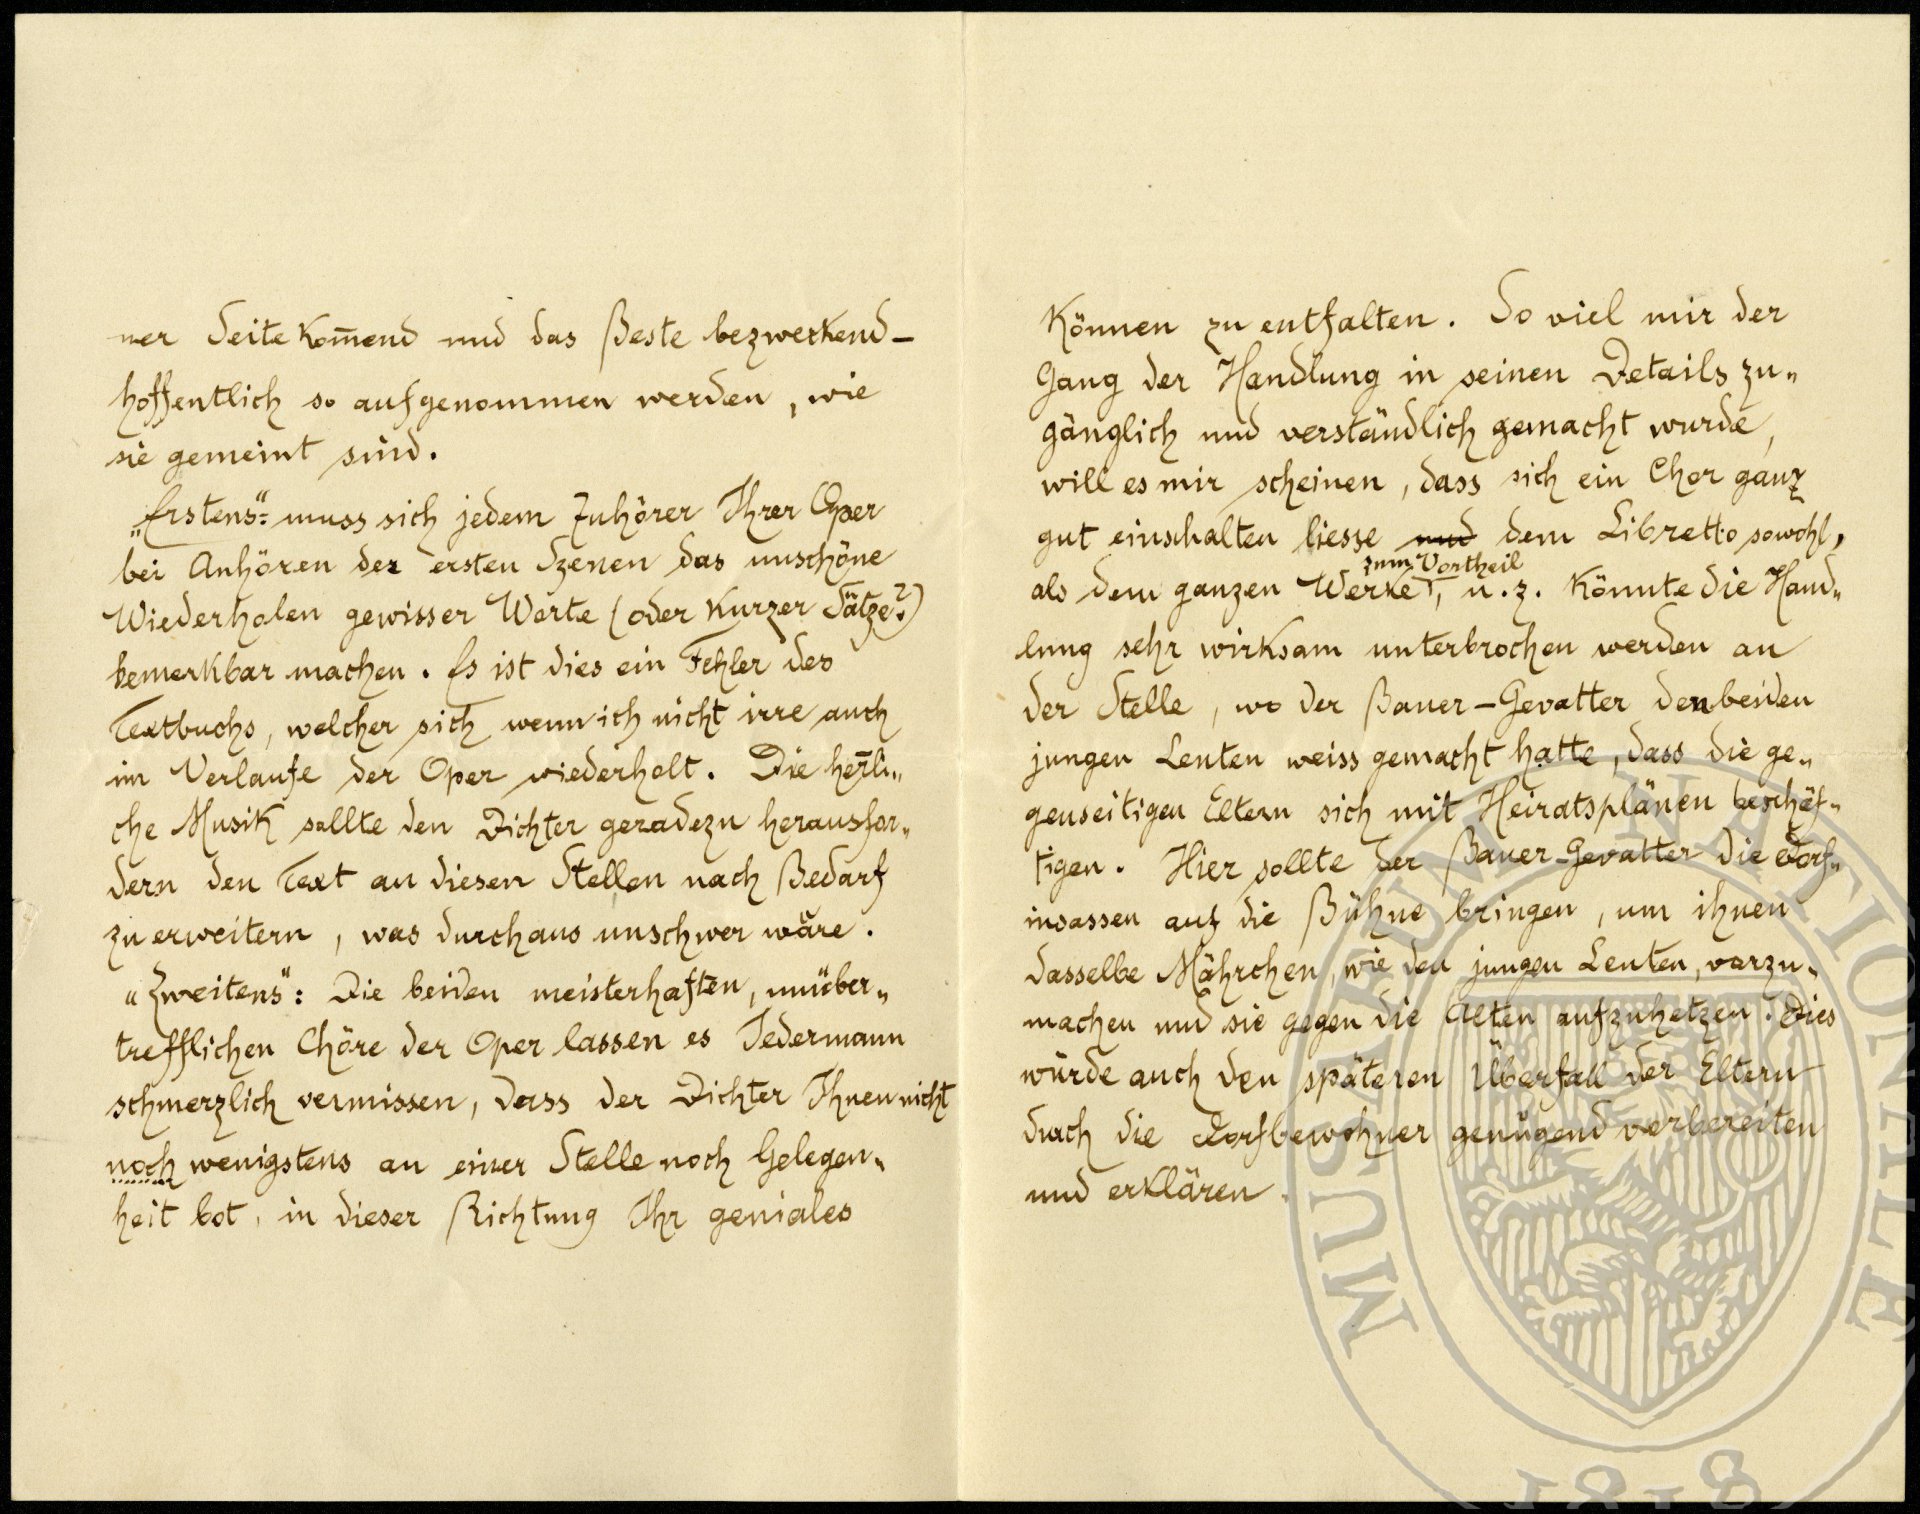 ner Seite kom̅end und das Beste bezweckend –
hoffentlich so aufgenommen werden, wie
sie gemeint sind.
„Erstens“: muss sich jedem Zuhörer Ihrer Oper
bei Anhören der ersten Szenen das unschöne
Wiederholen gewisser Worte (oder kurzer Sätze?)
bemerkbar machen. Es ist dies ein Fehler des
Textbuchs, welcher sich, wenn ich nicht irre auch
im Verlaufe der Oper wiederholt. Die her̅li„
che Musik sollte den Dichter geradezu herausfor„
dern den Text an diesen Stellen nach Bedarf
zu erweitern, was durchaus unschwer wäre.
„Zweitens“: Die beiden meisterhaften, unüber„
trefflichen Chöre der Oper lassen es Jedermann
schmerzlich vermissen, dass der Dichter Ihnen nicht
noch wenigstens an einer Stelle noch Gelegen„
heit bot, in dieser Richtung Ihr geniales
Können zu entfalten. So viel mir der
Gang der Handlung in seinen Details zu„
gänglich und verständlich gemacht wurde,
will es mir scheinen, dass sich ein Chor ganz
gut einschalten liesse und dem Libretto sowohl,
zum Vortheil
als dem ganzen Werke, u. z. könnte die Hand„
lung sehr wirksam unterbrochen werden an
der Stelle, wo der Bauer-Gevatter den beiden
jungen Leuten weiss gemacht hatte, dass die ge„
genseitigen Eltern sich mit Heiratsplänen beschäf„
tigen. Hier sollte der Bauer-Gevatter die Dorf„
insassen auf die Bühne bringen, um ihnen
dasselbe Mährchen, wie den jungen Leuten, vorzu„
machen und sie gegen die Alten aufzuhetzen. Dies
würde auch den späteren Überfall der Eltern
durch die Dorfbewohner genügend vorbereiten
und erklären.
MUSAEUM NATIONALE
1818